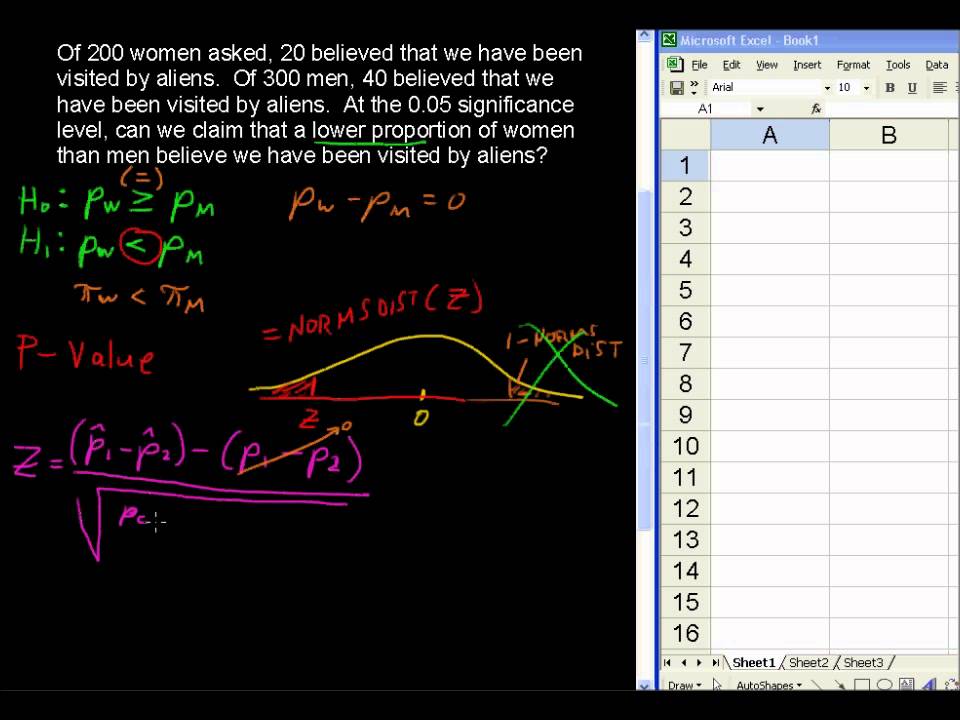 Of 200 women asked, 20 believed that we have been
visited by aliens. Of 300 men, 40 believed that we
have been visited by aliens. At the 0.05 significance
level, can we claim that a lower proportion of women
than men believe we have been visited by aliens?
(=)
H₀: pw ≥ pM
pw - pM = 0
H₁: pw < pM
πw < πM
= NORMSDIST(Z)
1-NORMS
DIST
P-Value
Z
0
0
Z = (p̂₁ - p̂₂) - (p₁ - p₂)
√ pc
Microsoft Excel - Book1
File Edit View Insert Format Tools Data
Arial 10 B U
A1 fx
A B
1
2
3
4
5
6
7
8
9
10
11
12
13
14
15
16
Sheet1 Sheet2 Sheet3
Draw AutoShapes